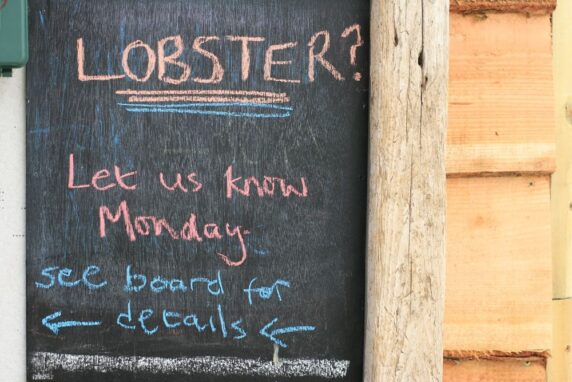 LOBSTER?
Let us know
Monday.
see board for
← details ←